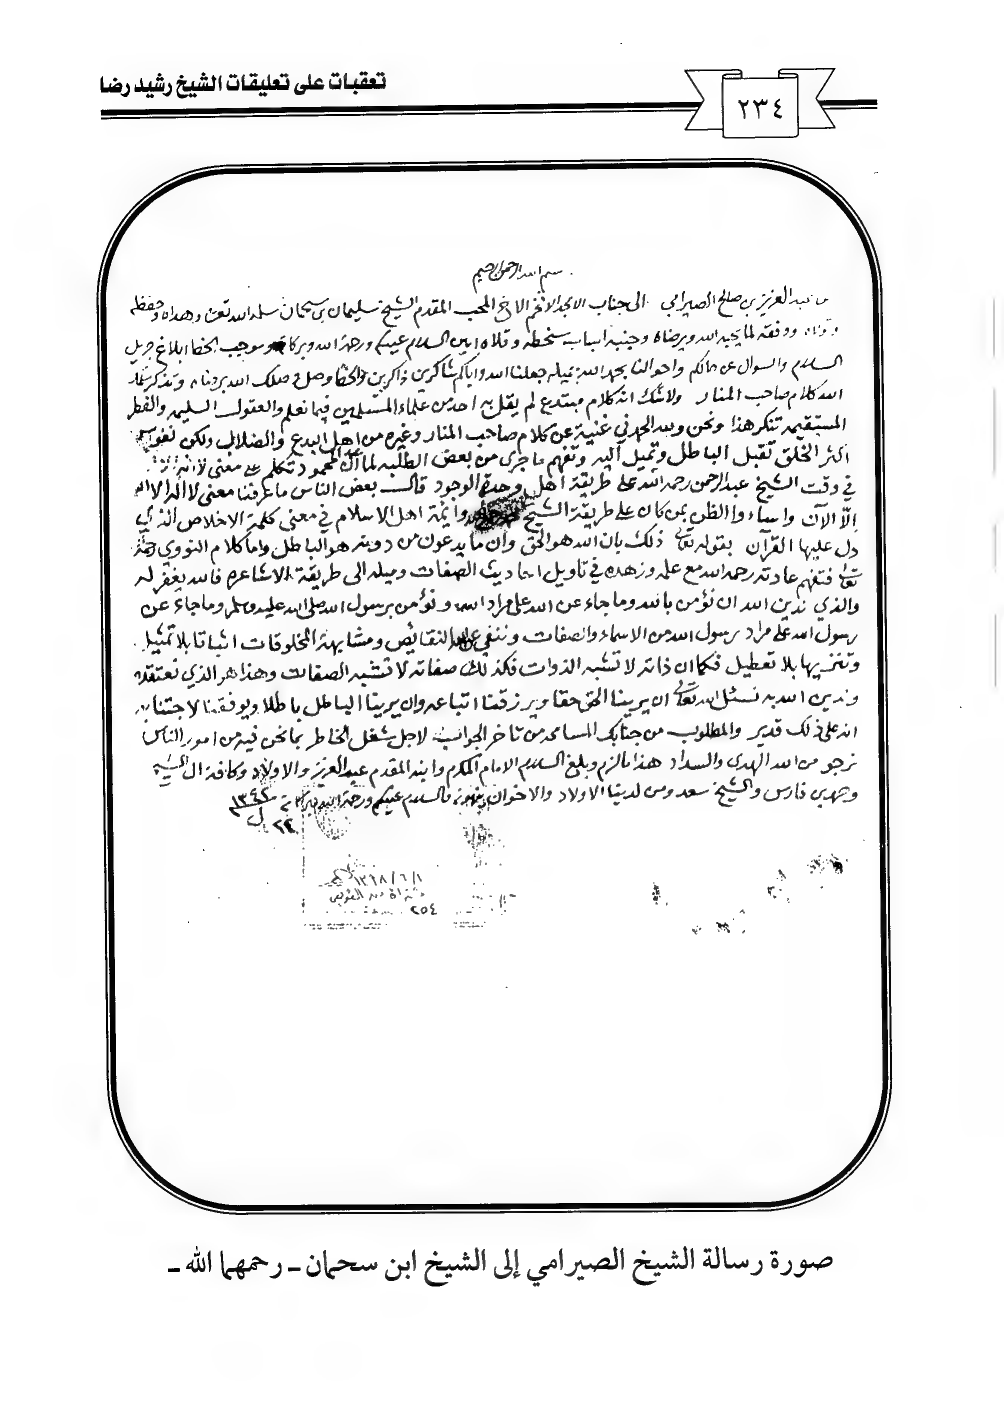 تعقبات على تعليقات الشيخ رشيد رضا
٢٣٤
بسم الله الرحمن الرحيم
من عبد العزيز بن صالح الصيرامي الى جناب الامجد الافخم الاخ المحب المقدم الشيخ سليمان بن سحمان سلمه الله تعالى وهداه وحفظه
وتولاه ووفقه لما يحبه الله ويرضاه وجنبه اسباب سخطه وقلاه امين السلام عليكم ورحمة الله وبركاته وموجب الخط ابلاغ جزيل
السلام والسوال عن حالكم واحوالنا بحمد الله جميله جعلنا الله واياكم شاكرين ذاكرين والخط وصل وصلك الله برضاه وتذكر سلمك
الله كلام صاحب المنار ولا شك انه كلام مبتدع لم يقل به احد من علماء المسلمين فيما نعلم والعقول السليمه والفطر
المستقيمه تنكر هذا ونحن ولله الحمد في غنية عن كلام صاحب المنار وغيره من اهل البدع والضلال ولكن نفوس
اكثر الخلق تقبل الباطل وتميل اليه وتفهم ما جرى من بعض الطلبه لما محمود تكلم على معنى لا اله الا الله
في وقت الشيخ عبد الرحمن رحمه الله على طريقة اهل وحدة الوجود قال بعض الناس ما عرفنا معنى لا اله الا الله
الا الآن واساء والظن بمن كان على طريقة الشيخ وائمة اهل الاسلام في معنى كلمة الاخلاص الذي
دل عليها القرآن بقوله تعالى ذلك بان الله هو الحق وان ما يدعون من دونه هو الباطل واما كلام النووي رحمه الله
تعالى فتفهم عادته رحمه الله مع علمه وزهده في تاويل احاديث الصفات وميله الى طريقة الاشاعره فالله يغفر له
والذي ندين الله ان نؤمن بالله وما جاء عن الله على مراد الله ونؤمن برسول الله صلى الله عليه وسلم وما جاء عن
رسول الله على مراد رسول الله من الاسماء والصفات وننفي عنه النقائص ومشابهة المخلوقات اثباتا بلا تمثيل
وتنزيها بلا تعطيل فكما ان ذاته لا تشبه الذوات فكذلك صفاته لا تشبه الصفات وهذا هو الذي نعتقده
وندين الله به نسئل الله تعالى ان يرينا الحق حقا ويرزقنا اتباعه وان يرينا الباطل باطلا ويوفقنا لاجتنابه
انه على ذلك قدير والمطلوب من جنابك المسامحه من تاخر الجواب لاجل شغل الخاطر بما نحن فيه من امور الناس
نرجو من الله الهدى والسداد هذا ما لزم وبلغ السلام الامام المكرم وابنه المقدم عبد العزيز والاولاد وكافة ال الشيخ
وحمد بن فارس والشيخ سعد ومن لدينا الاولاد والاخوان ينهون والسلام عليكم ورحمة الله وبركاته
١٣٤٢
٢٤ ل
١٣٩٨/٦/١
٢٥٤
صورة رسالة الشيخ الصيرامي إلى الشيخ ابن سحمان ـ رحمهما الله ـ